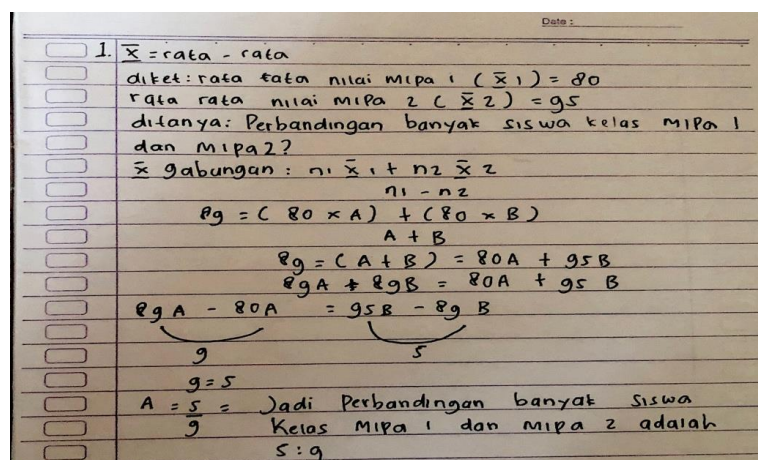 Date :
1. x̄ = rata - rata
diket : rata tata nilai mipa 1 ( x̄ 1 ) = 80
rata rata nilai mipa 2 ( x̄ 2 ) = 95
ditanya : Perbandingan banyak siswa kelas mipa 1
dan mipa 2 ?
x̄ gabungan : n1 x̄ 1 + n2 x̄ 2
n1 - n2
89 = ( 80 x A ) + ( 80 x B )
A + B
89 = ( A + B ) = 80A + 95 B
89A + 89B = 80A + 95 B
89 A - 80A = 95B - 89 B
9 5
9 = 5
A = 5/9 = Jadi Perbandingan banyak siswa
Kelas mipa 1 dan mipa 2 adalah
5 : 9